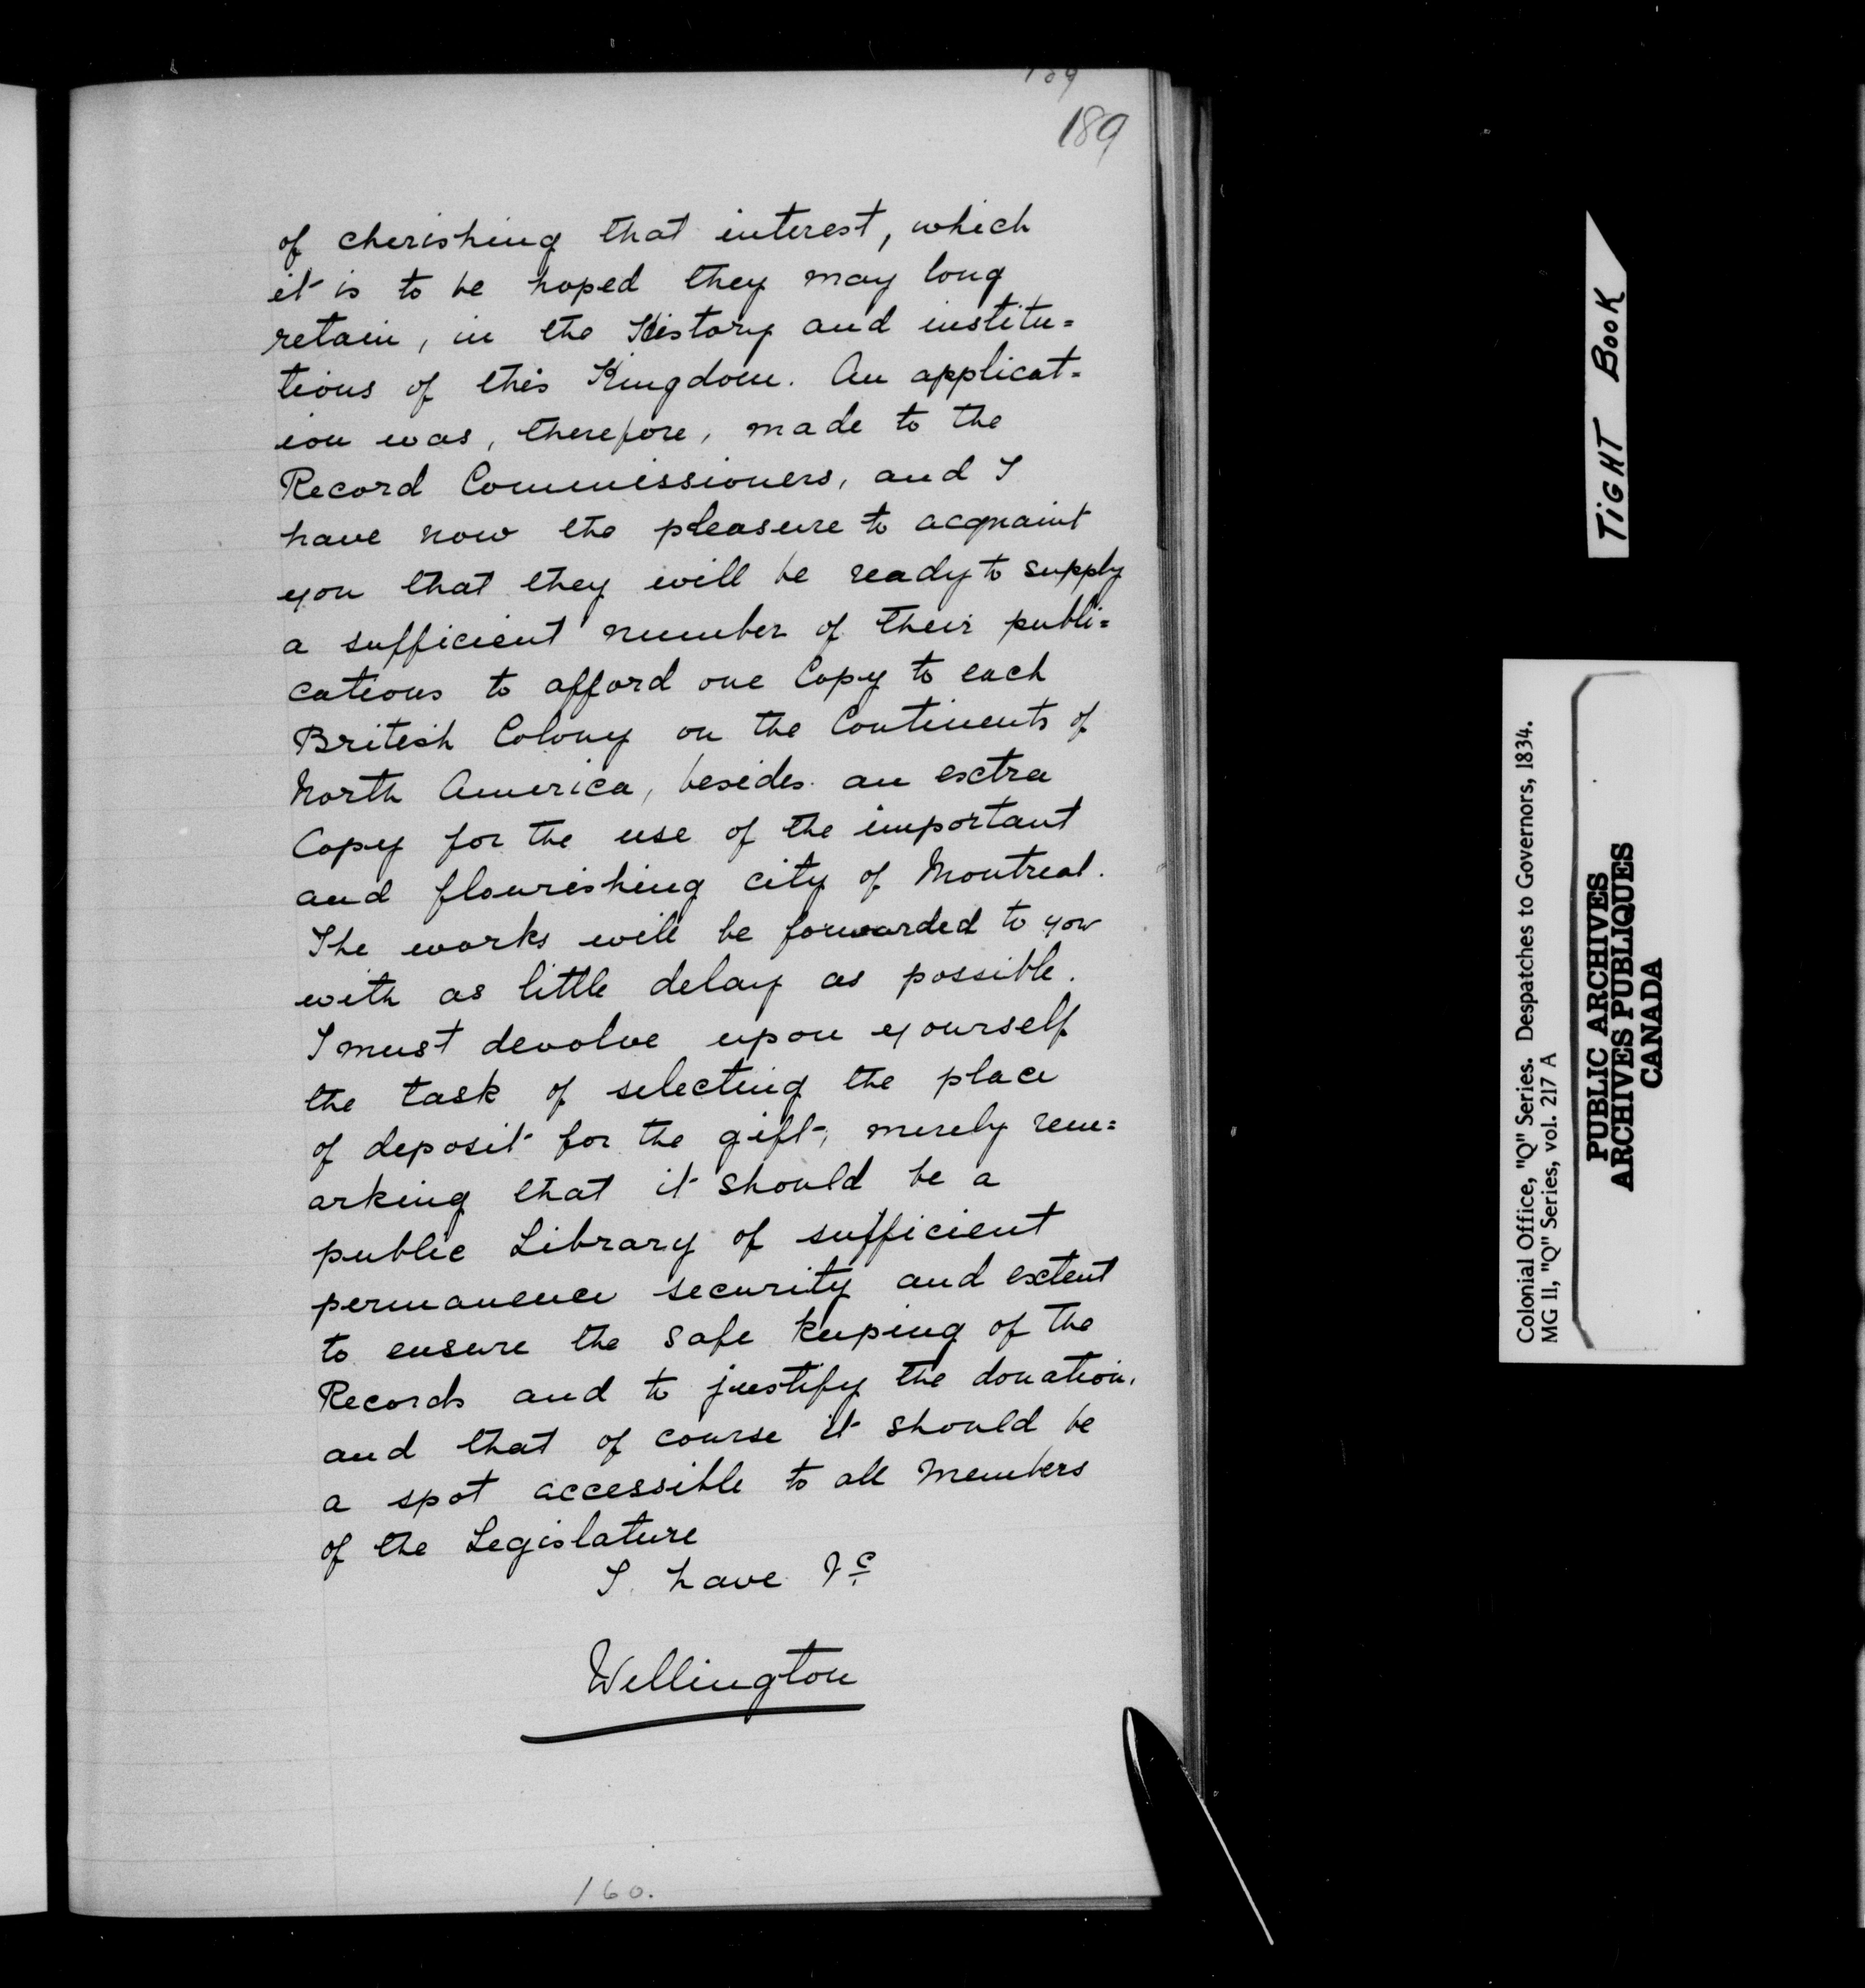 189
of cherishing that interest, which
it is to be hoped they may long
retain, in the History and institu=
tions of this Kingdom. An applicat=
ion was, therefore, made to the
Record Commissioners, and I
have now the pleasure to acquaint
you that they will be ready to supply
a sufficient number of their publi=
cations to afford one Copy to each
British Colony on the Continents of
North America, besides an extra
Copy for the use of the important
and flourishing city of Montreal.
The works will be forwarded to you
with as little delay as possible.
I must devolve upon yourself
the task of selecting the place
of deposit for the gift, merely rem=
arking that it should be a
public Library of sufficient
permanence security and extent
to ensure the safe keeping of the
Records and to justify the donation,
and that of course it should be
a spot accessible to all Members
of the Legislature
I have &c
Wellington
160.
TIGHT BOOK
Colonial Office, "Q" Series. Despatches to Governors, 1834.
MG 11, "Q" Series, vol. 217 A
PUBLIC ARCHIVES
ARCHIVES PUBLIQUES
CANADA